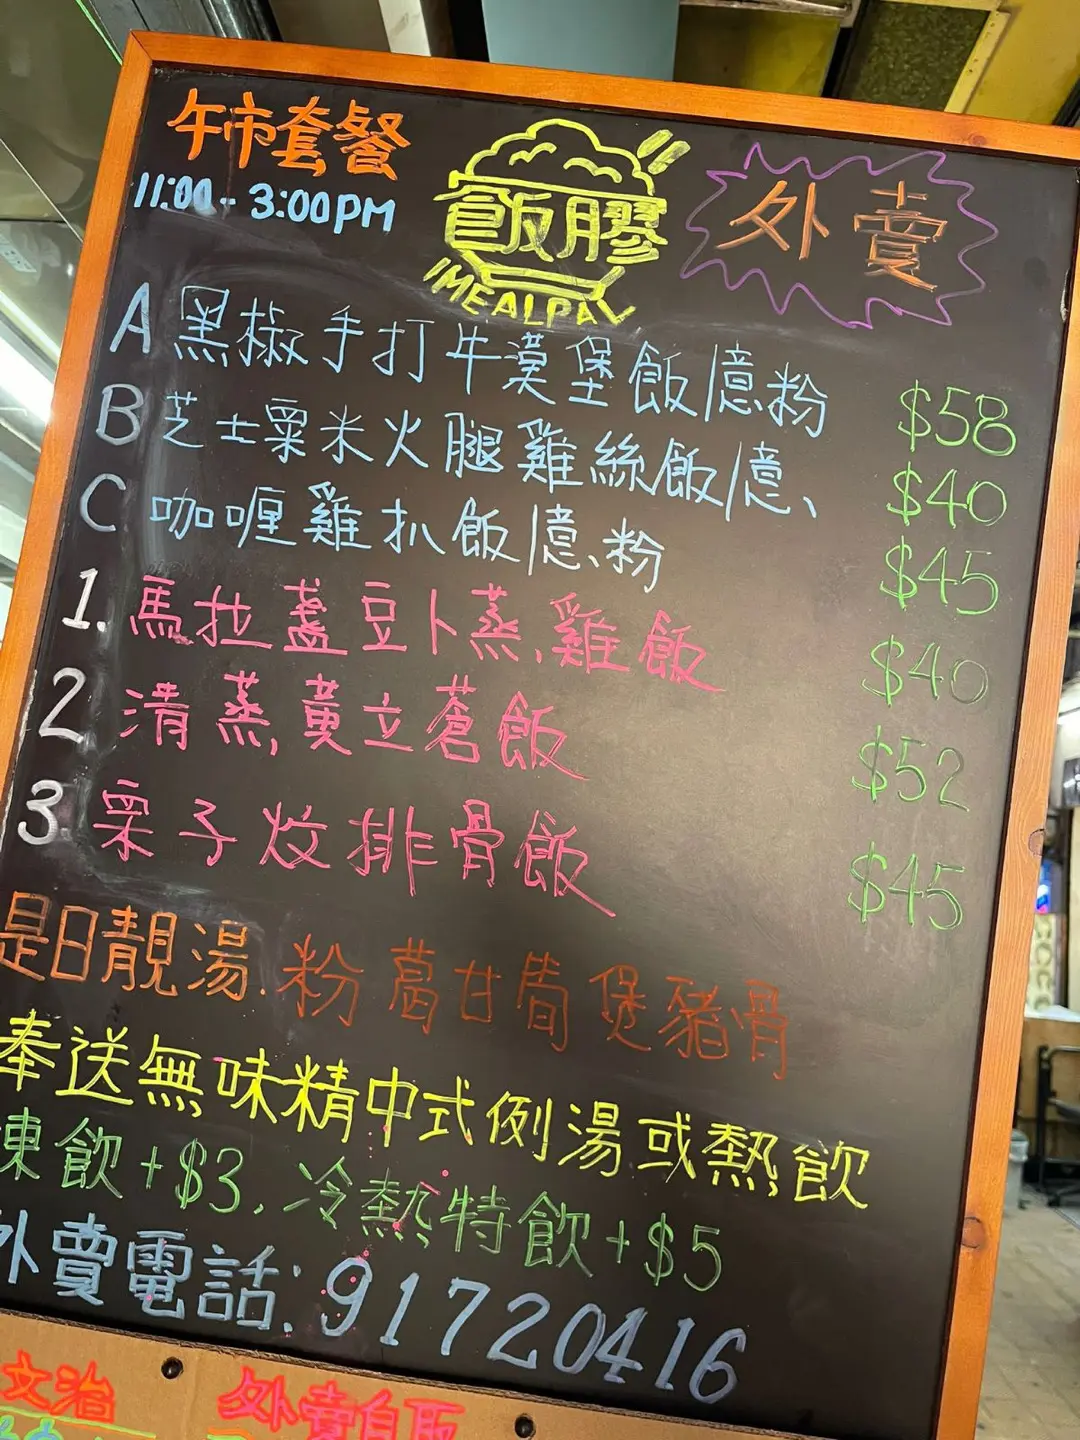 午市套餐
11:00 - 3:00PM
飯膠
MEALPAL
外賣
A 黑椒手打牛漢堡飯/意.粉 $58
B 芝士粟米火腿雞絲飯/意、 $40
C 咖喱雞扒飯/意、粉 $45
1. 馬拉盞豆卜蒸雞飯 $40
2. 清蒸黃立蒼飯 $52
3. 栗子炆排骨飯 $45
是日靚湯: 粉葛甘筍煲豬骨
奉送無味精中式例湯或熱飲
凍飲+$3, 冷熱特飲+$5
外賣電話: 91720416
文治
外賣自取